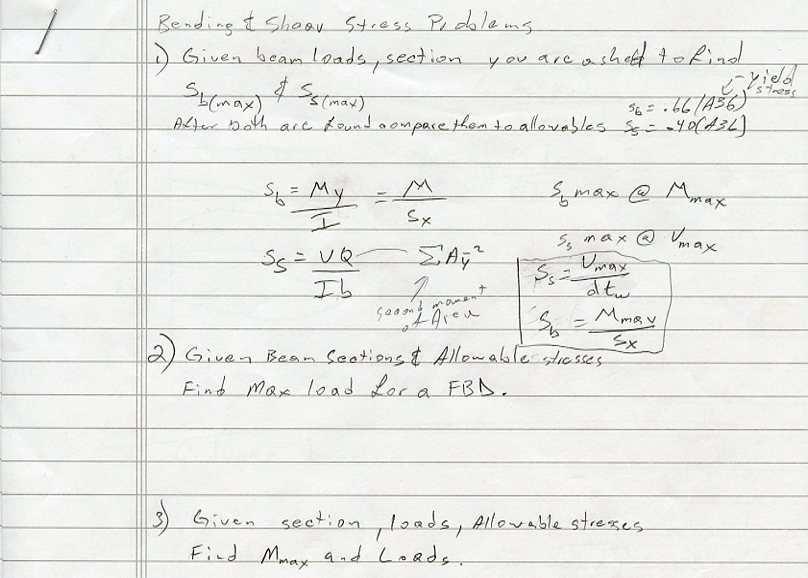 1
Bending & Shear Stress Problems
1) Given beam loads, section you are asked to find
Sb(max) & Ss(max)
yield stress
Sb = .66(A36)
After both are found compare them to allowables Ss = .40(A36)
Sb = My/I = M/Sx
Sb max @ Mmax
Ss max @ Vmax
Ss = VQ/Ib
ΣAȳ²
second moment
of Area
Ss = Vmax/dtw
Sb = Mmax/Sx
2) Given Beam Sections & Allowable stresses
Find Max load for a FBD.
3) Given section, loads, Allowable stresses
Find Mmax and Loads.